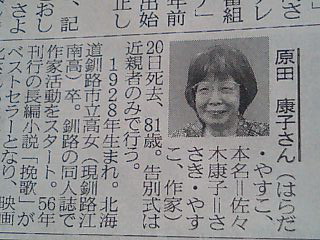 原田 康子さん（はらだ
・やすこ、
本名＝佐々
木康子＝さ
さき・やす
こ、作家）
20日死去、81歳。告別式は
近親者のみで行う。
1928年生まれ。北海
道釧路市立高女（現釧路江
南高）卒。釧路の同人誌で
作家活動をスタート。56年
刊行の長編小説「挽歌」が
ベストセラーとなり、映画